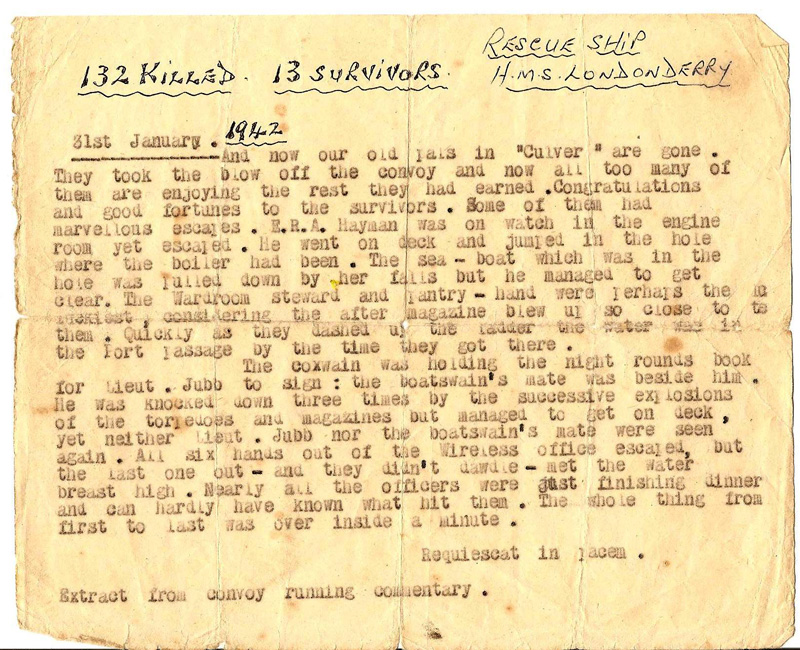 RESCUE SHIP
132 KILLED. 13 SURVIVORS. H.M.S. LONDONDERRY
31st January. 1942
And now our old pals in "Culver" are gone.
They took the blow off the convoy and now all too many of
them are enjoying the rest they had earned.Congratulations
and good fortunes to the survivors. Some of them had
marvellous escapes. E.R.A. Hayman was on watch in the engine
room yet escaped. He went on deck and jumped in the hole
where the boiler had been. The sea-boat which was in the
hole was pulled down by her falls but he managed to get
clear. The Wardroom steward and pantry-hand were perhaps the lu
luckiest, considering the after magazine blew up so close to to
them. Quickly as they dashed up the ladder the water was in
the port passage by the time they got there.
The coxwain was holding the night rounds book
for Lieut. Jubb to sign: the boatswain's mate was beside him.
He was knocked down three times by the successive explosions
of the torpedoes and magazines but managed to get on deck,
yet neither Lieut. Jubb nor the boatswain's mate were seen
again. All six hands out of the Wireless office escaped, but
the last one out- and they didn't dawdle- met the water
breast high. Nearly all the officers were just finishing dinner
and can hardly have known what hit them. The whole thing from
first to last was over inside a minute.
Requiescat in pacem.
Extract from convoy running commentary.